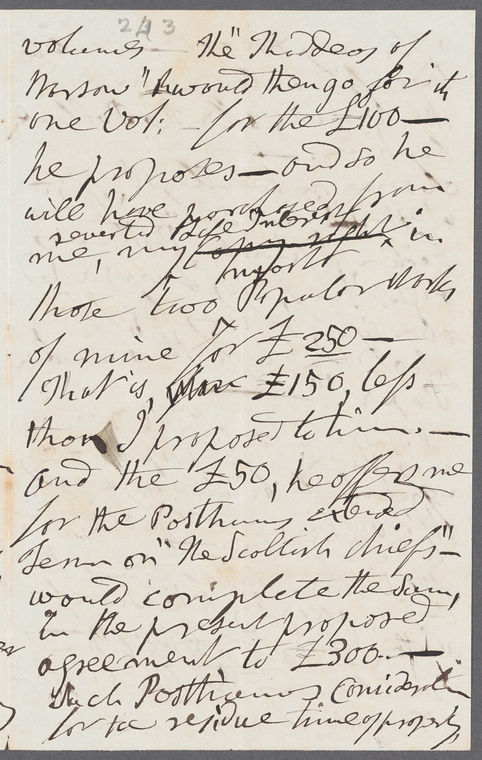 243
volumes — The "Thaddeus of
Warsaw" would then go for its
one Vol: — for the £100 —
he proposes — and so he
will have purchased from
reverted Life Interest
me, my copy right in
those two Popular Works
of mine for £250 —
That is, £150, less
than I proposed to him. —
and the £50, he offers me
for the Posthums extended
Term on "The Scottish Chiefs" —
would complete the Sum,
in the present proposed
agreement to £300. —
Such Posthumous Consideration
for the residue time of property